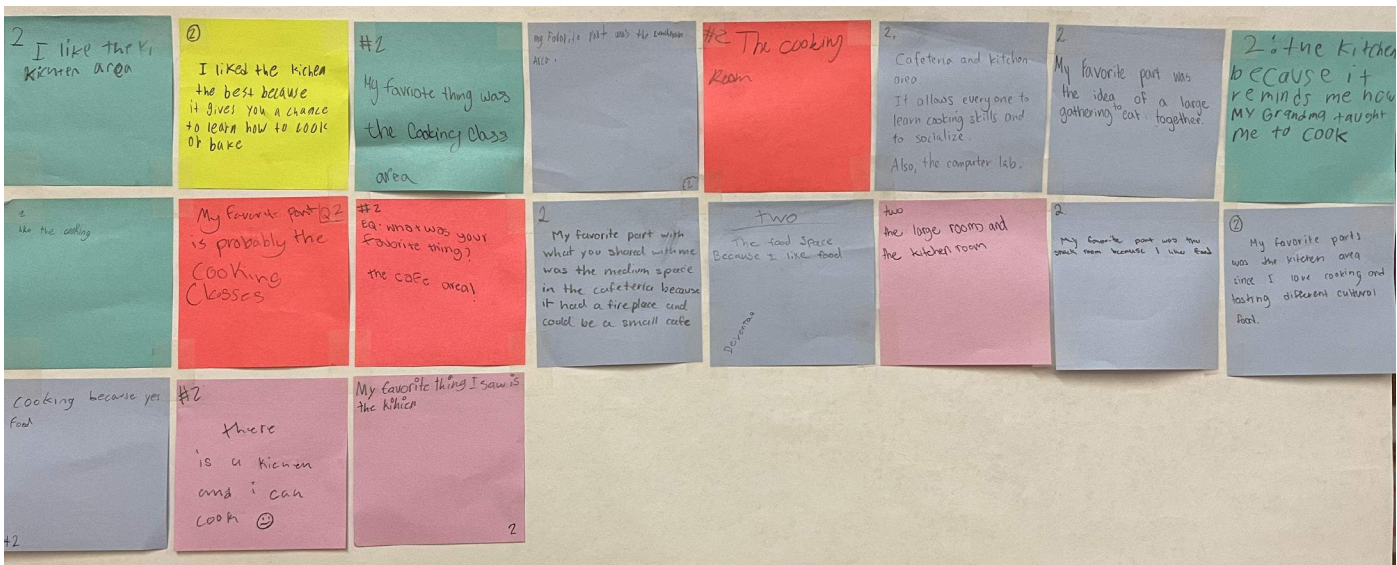 2
I like the Ki
Kichten area
2
I liked the kichen
the best because
it gives you a chance
to learn how to cook
or bake
#2
My favriote thing was
the Cooking Class
area
my Favorite Part was the
2
#2 The cooking
Room
2.
Cafeteria and kitchen
area.
It allows everyone to
learn cooking skills and
to socialize.
Also, the computer lab.
2.
My favorite part was
the idea of a large
gathering to eat together.
2: the Kitchen
because it
reminds me how
MY Grandma taught
me to COOK
2
like the cooking
My Favorite Part Q2
is probably the
Cooking
Classes
#2
EQ: what was your
favorite thing?
the cafe area!
2
My favorite part with
what you shared with me
was the medium space
in the cafeteria because
it had a fireplace and
could be a small cafe
two
The food Space
Because I like food
two
the large room and
the kitchen room
2
My favorite part was the
snack room because I like food
2
My favorite parts
was the kitchen area
since I love cooking and
tasting different cultural
food.
Cooking because yes
Food
#2
#2
there
is a kichen
and i can
cook
My favorite thing I saw is
the kihicn
2